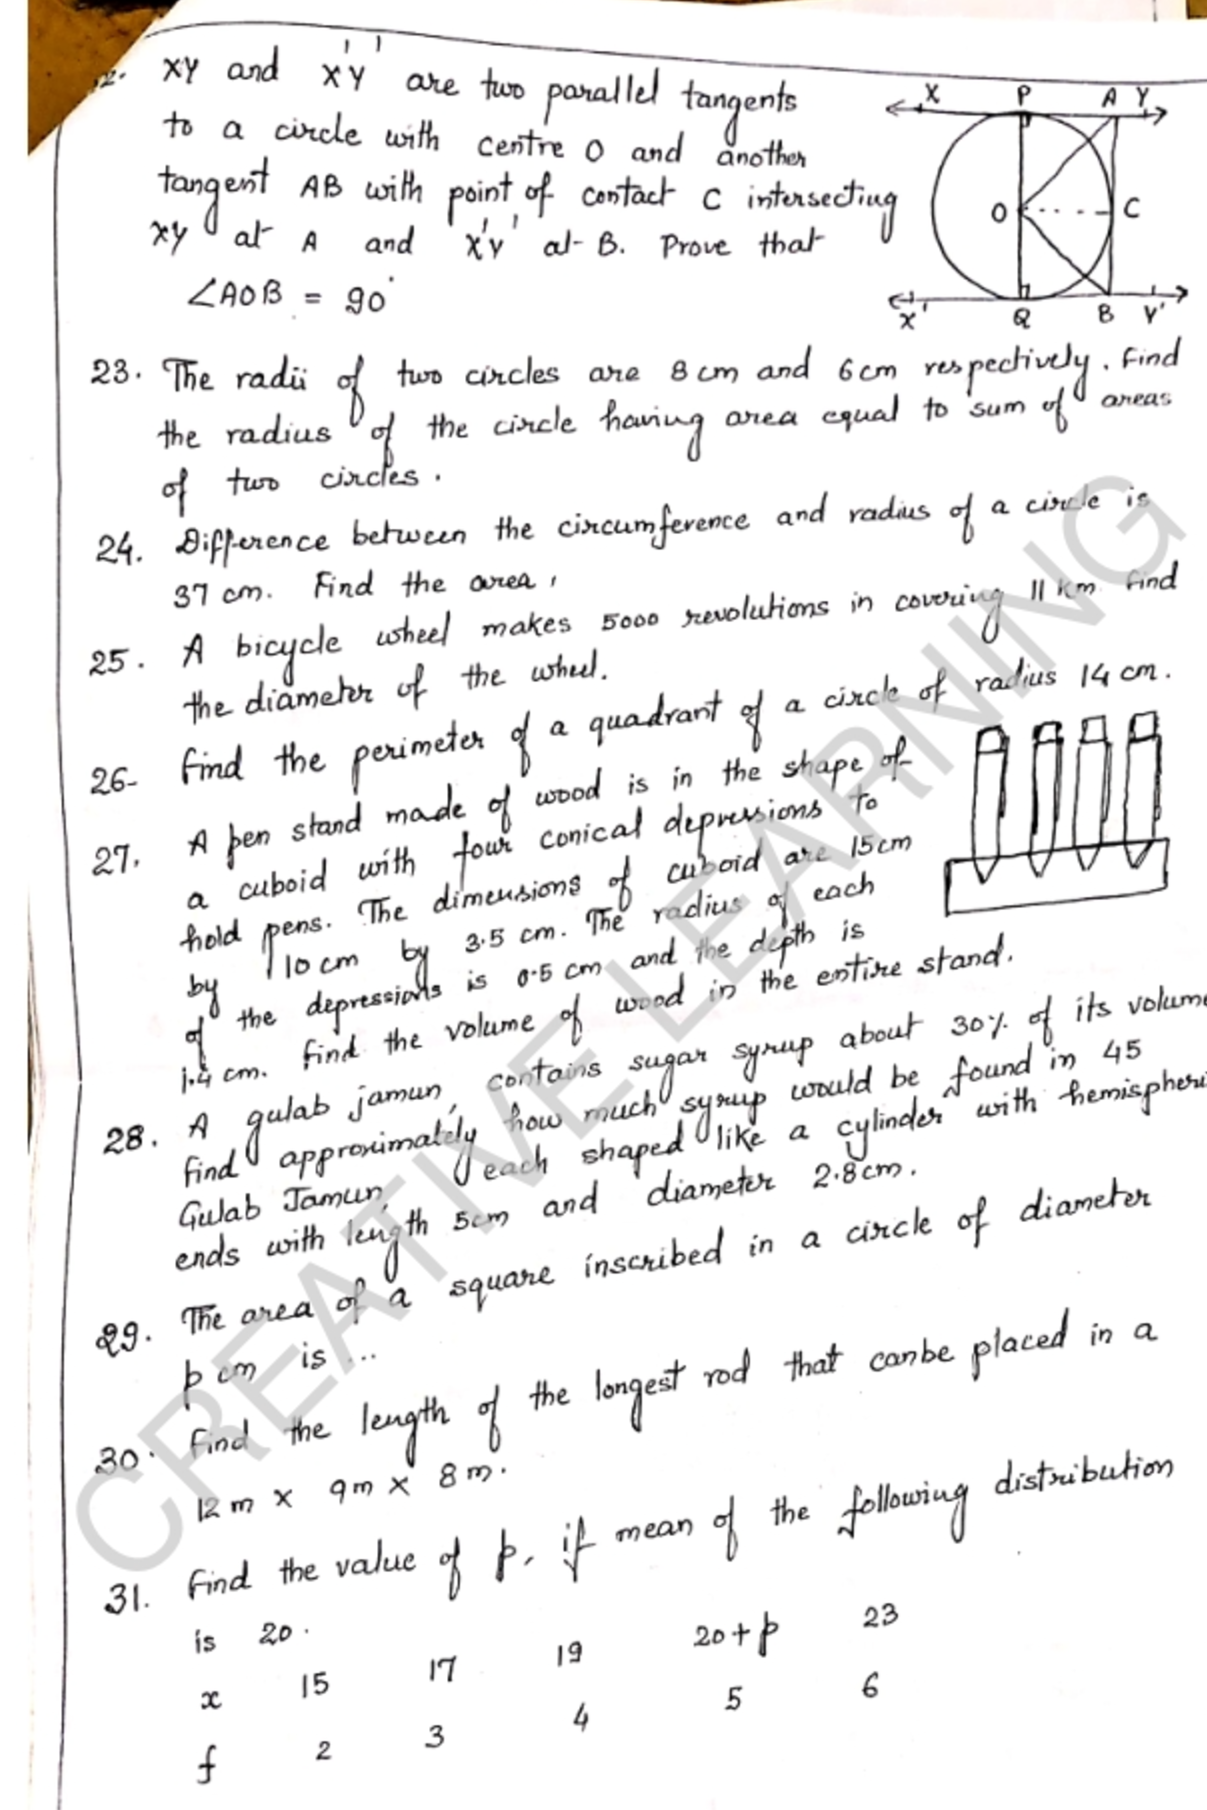 2. XY and X'Y' are two parallel tangents
to a circle with centre O and another
tangent AB with point of contact C intersecting
XY at A and X'Y' at B. Prove that
∠AOB = 90°
X P A Y
O C
X' Q B Y'
23. The radii of two circles are 8 cm and 6 cm respectively. Find
the radius of the circle having area equal to sum of areas
of two circles.
24. Difference between the circumference and radius of a circle is
37 cm. Find the area.
25. A bicycle wheel makes 5000 revolutions in covering 11 km. Find
the diameter of the wheel.
26- Find the perimeter of a quadrant of a circle of radius 14 cm.
27. A pen stand made of wood is in the shape of
a cuboid with four conical depressions to
hold pens. The dimensions of cuboid are 15cm
by 10 cm by 3.5 cm. The radius of each
of the depressions is 0.5 cm and the depth is
1.4 cm. Find the volume of wood in the entire stand.
28. A gulab jamun, contains sugar syrup about 30% of its volume
Find approximately how much syrup would be found in 45
Gulab Jamun, each shaped like a cylinder with hemispheri
ends with length 5cm and diameter 2.8cm.
29. The area of a square inscribed in a circle of diameter
p cm is ...
30. Find the length of the longest rod that canbe placed in a
12 m x 9m x 8 m.
31. Find the value of p, if mean of the following distribution
is 20.
x 15 17 19 20+p 23
f 2 3 4 5 6
CREATIVE LEARNING